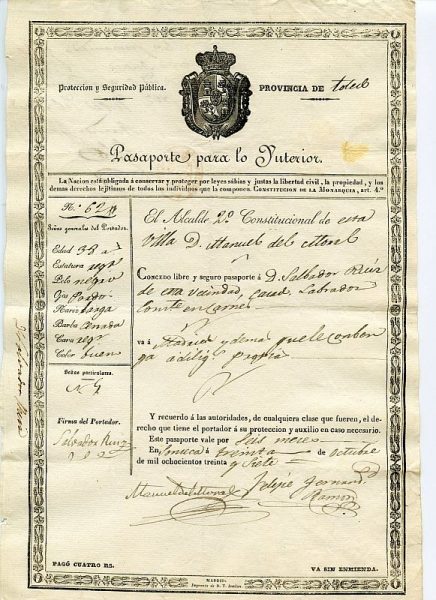 Proteccion y Seguridad Pública.
PROVINCIA DE Toledo
Pasaporte para lo Ynterior.
La Nacion está obligada á conservar y proteger por leyes sábias y justas la libertad civil, la propiedad, y los
demas derechos lejítimos de todos los individuos que la componen. CONSTITUCION DE LA MONARQUIA, art. 4.º
N.º 62
Señas generales del Portador.
Edad 33 a.s
Estatura reg.r
Pelo negro
Ojos Pardos
Nariz larga
Barba
Cara reg.r
Color buen
Señas particulares.
Firma del Portador.
Salvador Ruiz
El Alcalde 2.º Constitucional de esta
Villa D. Manuel del Moral
CONCEDO libre y seguro pasaporte á D. Salvador Ruiz
de esta vecindad, Casad. Labrador
va á y demas que le conben
ga á dilig.s propias
Y recuerdo á las autoridades, de cualquiera clase que fueren, el de-
recho que tiene el portador á su proteccion y auxilio en caso necesario.
Este pasaporte vale por seis meses
En á treinta de octubre
de mil ochocientos treinta
y siete
Manuel del Moral
Felipe Fernand.
Ramon
PAGÓ CUATRO RS.
VA SIN ENMIENDA.
MADRID: